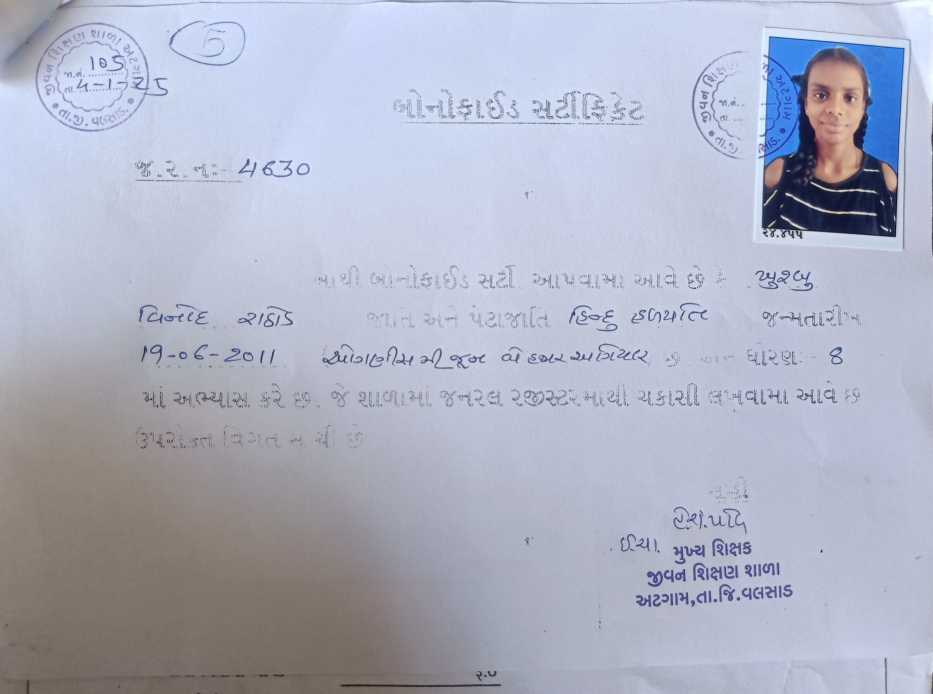 જીવન શિક્ષણ શાળા અટગામ
જા.નં. 105
તા. 4-1-25
તા.જી. વલસાડ.
5
બોનોફાઈડ સર્ટીફિકેટ
જીવન શિક્ષણ
જા.નં.
તા.
અટગામ
તા.જી
૨૪.૪૫૫
જ.ર.નં:- 4630
આથી બોનોફાઈડ સર્ટી. આપવામા આવે છે કે ખુશ્બુ
વિનોદ રાઠોડ જાતિ અને પેટાજાતિ હિન્દુ હળપતિ જન્મતારીખ
19-06-2011 ઓગણીસમી જૂન બે હજાર અગિયાર છે અને ધોરણ:- 8
માં અભ્યાસ કરે છે. જે શાળામાં જનરલ રજીસ્ટરમાથી ચકાસી લખવામા આવે છે
ઉપરોક્ત વિગત સાચી છે
ઈ.ચા. મુખ્ય શિક્ષક
જીવન શિક્ષણ શાળા
અટગામ,તા.જિ.વલસાડ